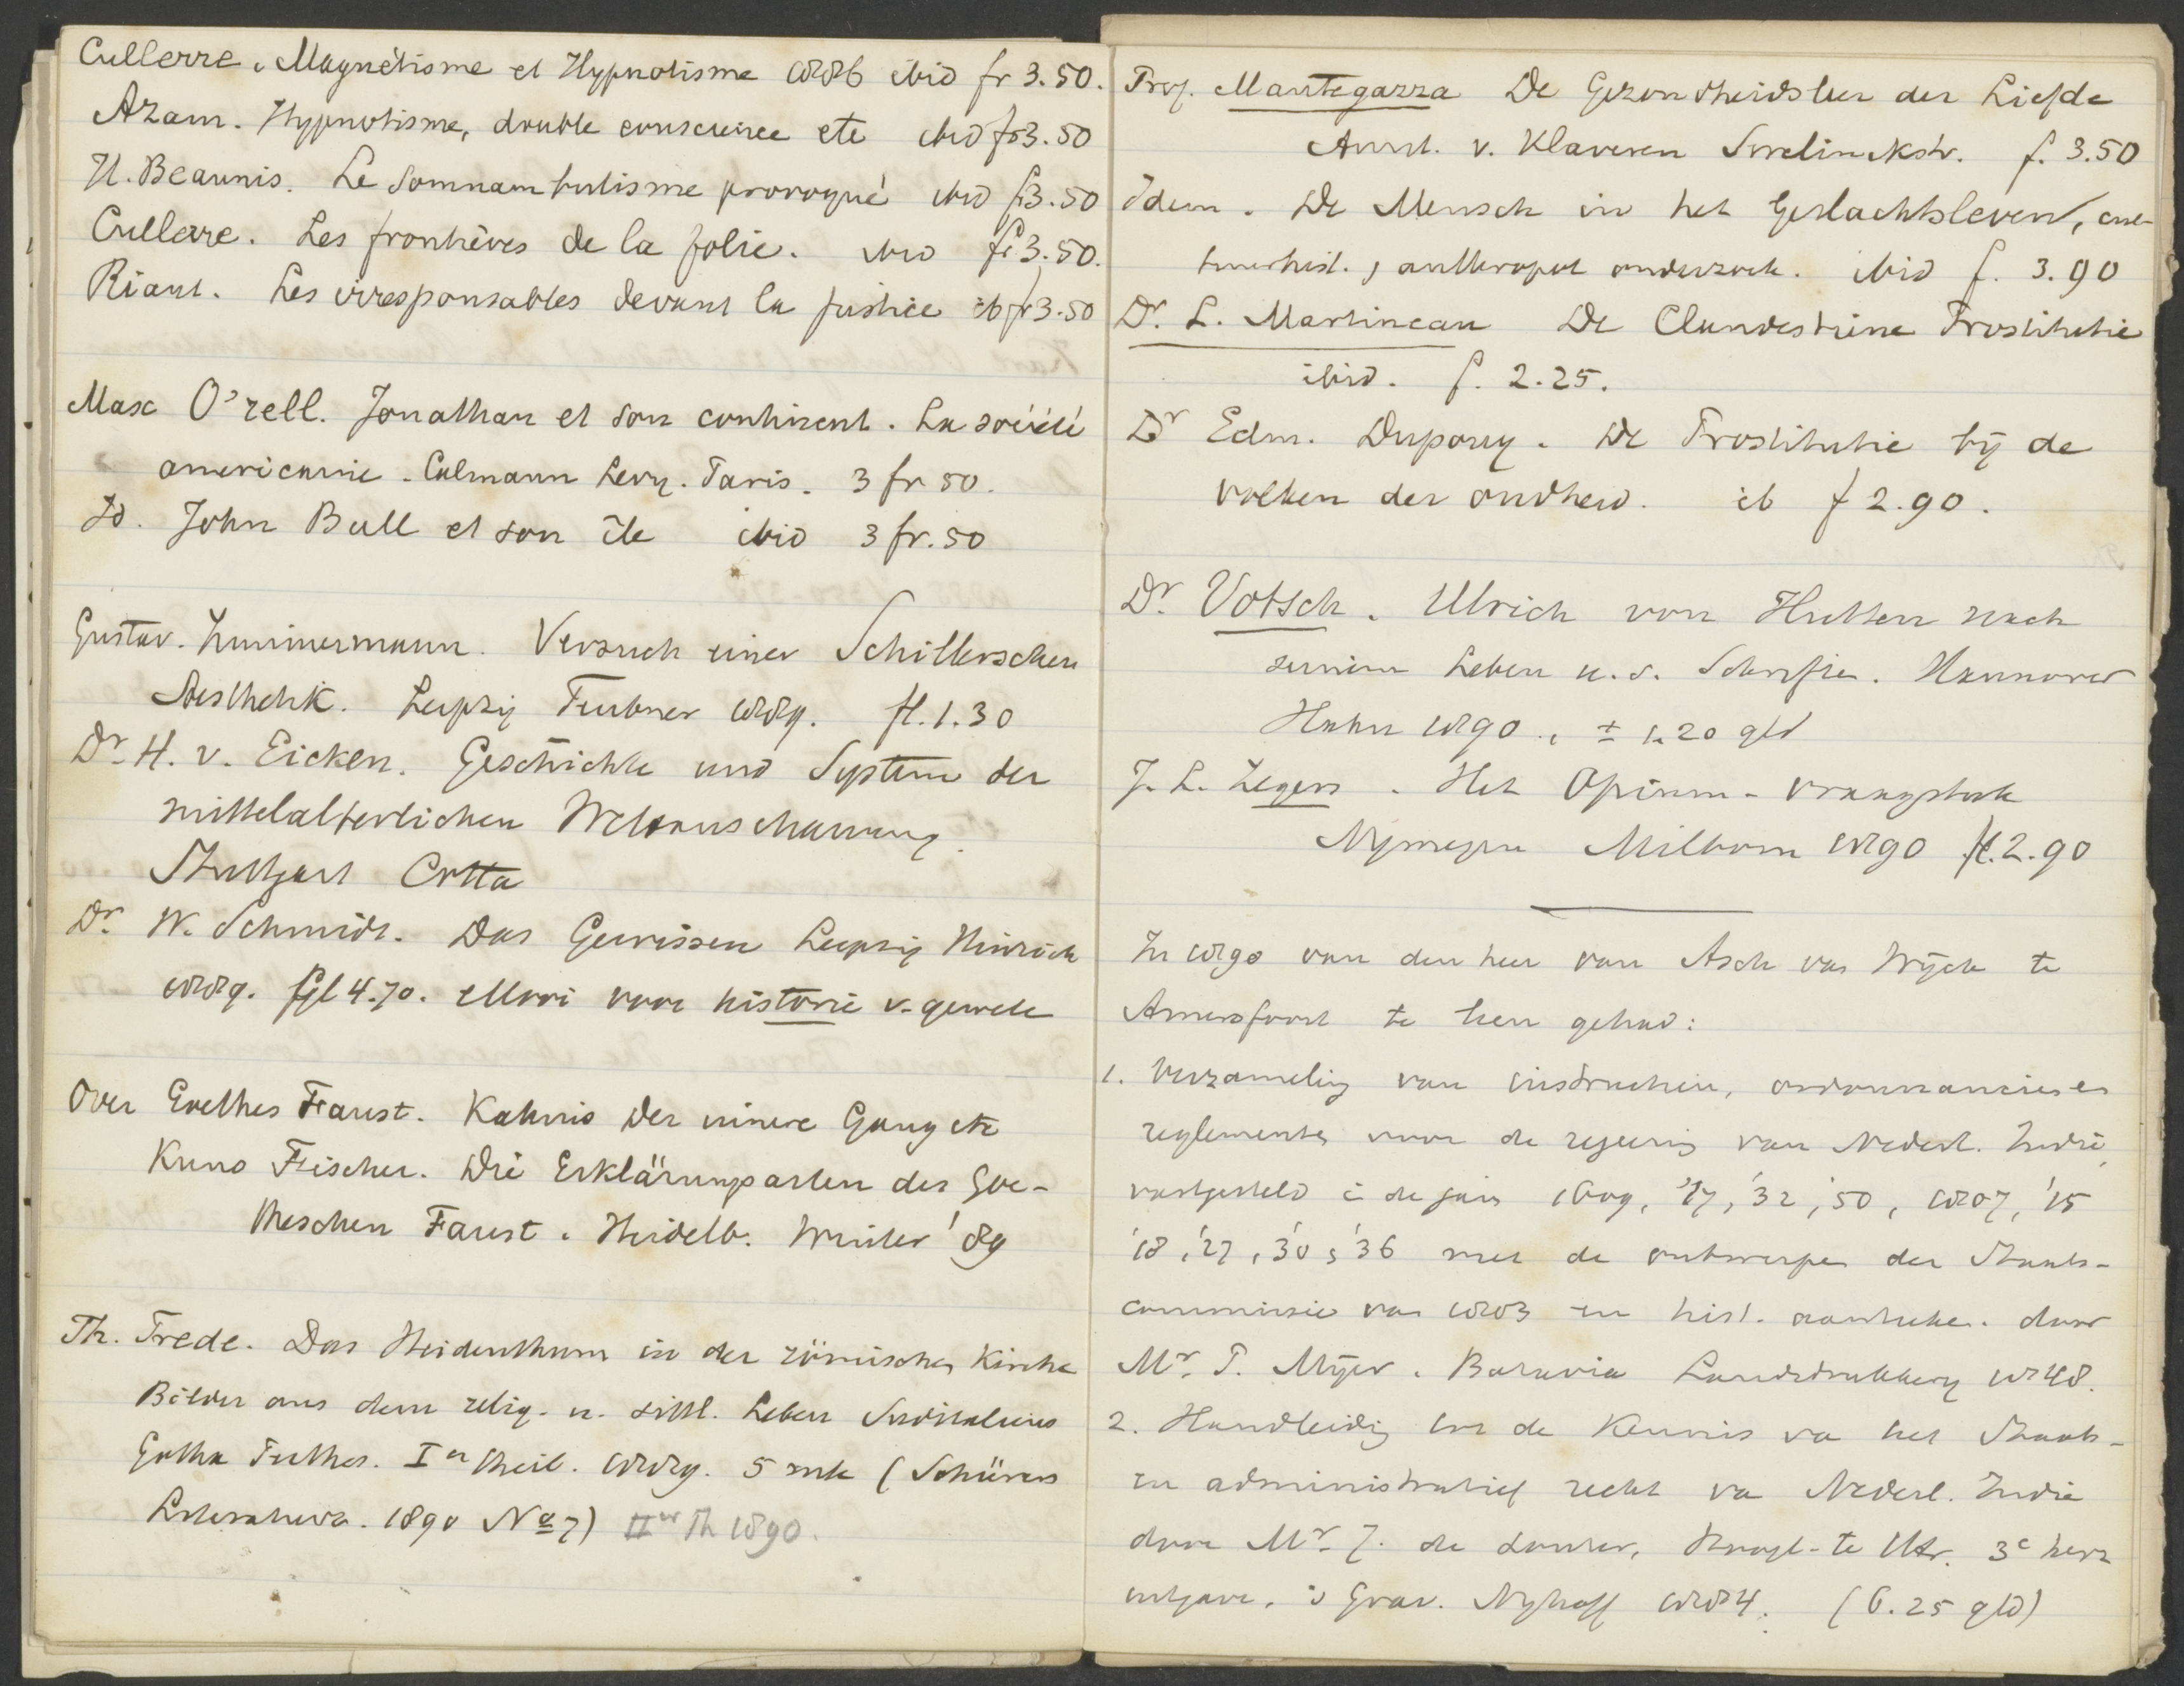 Cullerre. Magnétisme et Hypnotisme 1886 ibid fr 3.50.
Azam. Hypnotisme, double conscience etc ibid fr 3.50
H. Beaunis. Le Somnambulisme provoqué ibid fr 3.50
Cullerre. Les frontières de la folie. ibid fr 3.50.
Riant. Les irresponsables devant la justice ib fr 3.50
Max O'rell. Jonathan et son continent. La société
americaine. Calmann Levy. Paris. 3 fr 50.
Id. John Bull et son île ibid 3 fr. 50
Gustav. Zimmermann. Versuch einer Schillerschen
Aesthetik. Leipzig Teubner 1889. fl. 1.30
Dr. H. v. Eicken. Geschichte und System der
mittelalterlichen Weltanschauung.
Stuttgart Cotta
Dr. W. Schmidt. Das Gewissen Leipzig Hinrich
1889. fl 4.70. Mooi voor historie v. gewete
Over Goethes Faust. Kahnis Der innere Gang etc
Kuno Fischer. Die Erklärungsarten des Goe-
theschen Faust. Heidelb. Winter '89
Th. Trede. Das Heidenthum in der römischen Kirche
Bilder aus dem relig. u. sittl. Leben Süditaliens
Gotha Perthes. Ier Theil. 1889. 5 mk (Schürers
Literaturz. 1890 No 7) IIer Th 1890.
Prof. Mantegazza De Gezondheidsleer der Liefde
Amst. v. Klaveren Sweelinckstr. f. 3.50
Idem. De Mensch in het Geslachtsleven, cul-
tuurhist., anthropol onderzoek. ibid f. 3.90
Dr. L. Martineau De Clandestine Prostitutie
ibid. f. 2.25.
Dr Edm. Dupouy. De Prostitutie bij de
volken der oudheid. ib f 2.90.
Dr. Votsch. Ulrich von Hutten nach
seinem Leben u. s. Schriften. Hannover
Hahn 1890., ± 1.20 gld
J. L. Zegers. Het Opium-vraagstuk
Nymegen Milborn 1890 fl. 2.90
In 1890 van den heer van Asch van Wijck te
Amersfoort te leen gehad:
1. Verzameling van instructiën, ordonnancien en
reglementen voor de regeering van Nederl. Indië,
vastgesteld in de jaren 1609, '17, '32, '50, 1807, '15
'18, '27, '30, '36 met de ontwerpen der Staats-
commissie van 1803 en hist. aanteeken. door
Mr. P. Mijer. Batavia Landsdrukkery 1848.
2. Handleidig tot de Kennis va het Staats-
en administratief recht va Nederl. Indië
door Mr. J. de Louter, Hoogl. te Utr. 3e herz
uitgave. 's Grav. Nyhoff 1884. (6.25 gld)